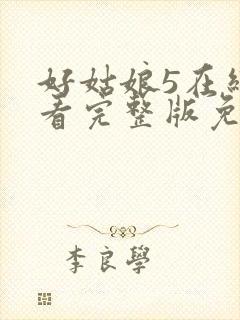 好姑娘5在
看完整版免
李良學